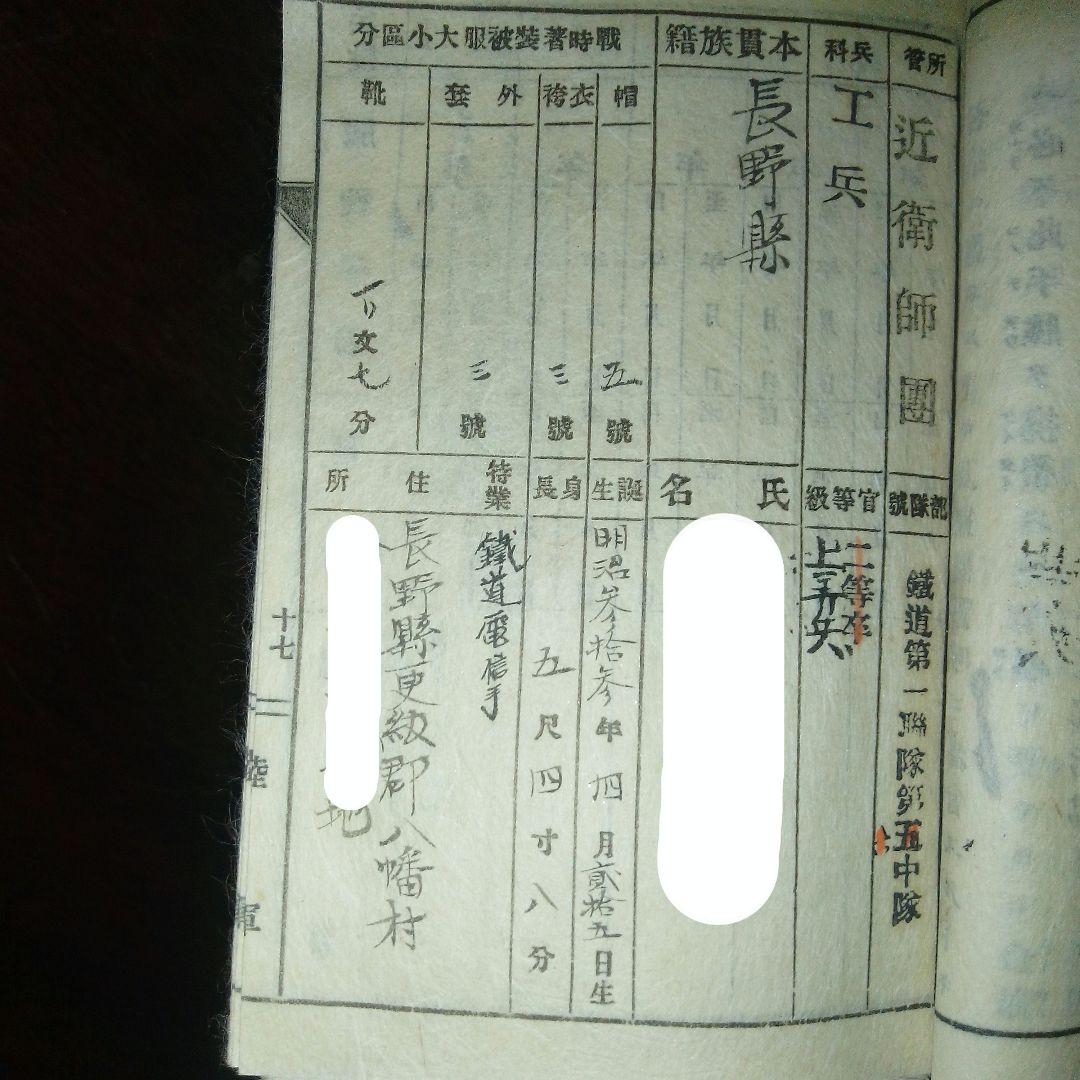 所管
近衛師團
部隊號
鐵道第一聯隊第五中隊
兵科
工兵
官等級
二等卒
上等兵
本貫族籍
長野縣
氏名
戰時著裝被服大小區分
帽
五號
衣袴
三號
外套
三號
靴
文七分
誕生
明治參拾參年四月貳拾五日生
身長
五尺四寸八分
特業
鐵道電信手
住所
長野縣更級郡八幡村
地
十七
陸軍